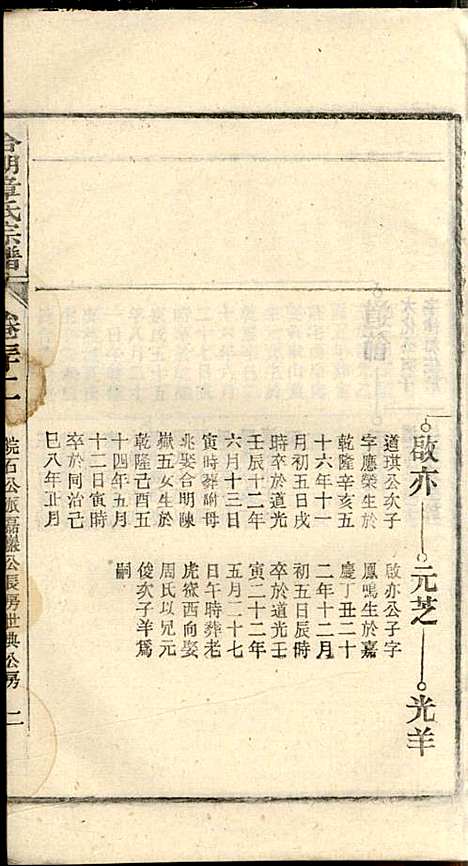 啟亦
元芝
光羊
道琪公次子
字應榮生於
乾隆辛亥五
十六年十一
月初五日戌
時卒於道光
壬辰十二年
六月十三日
寅時葬謝母
兆娶合明陳
嶽五女生於
乾隆己酉五
十四年五月
十二日寅時
卒於同治己
巳八年正月
啟亦公子字
鳳鳴生於嘉
慶丁丑二十
二年十二月
初五日辰時
卒於道光壬
寅二十二年
五月二十七
日午時葬老
虎嶽西向娶
周氏以兄元
俊次子羊為
嗣
合明章氏宗譜
卷三十二
院石公派磊巖公長房世典公房
二